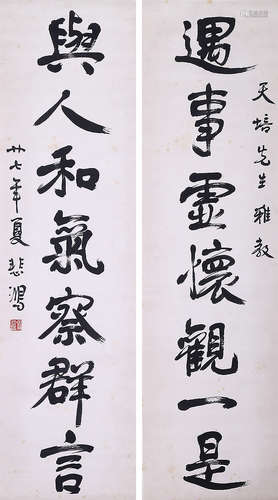 天培先生雅教
遇事虛懷觀一是
與人和氣察群言
廿七年夏悲鴻